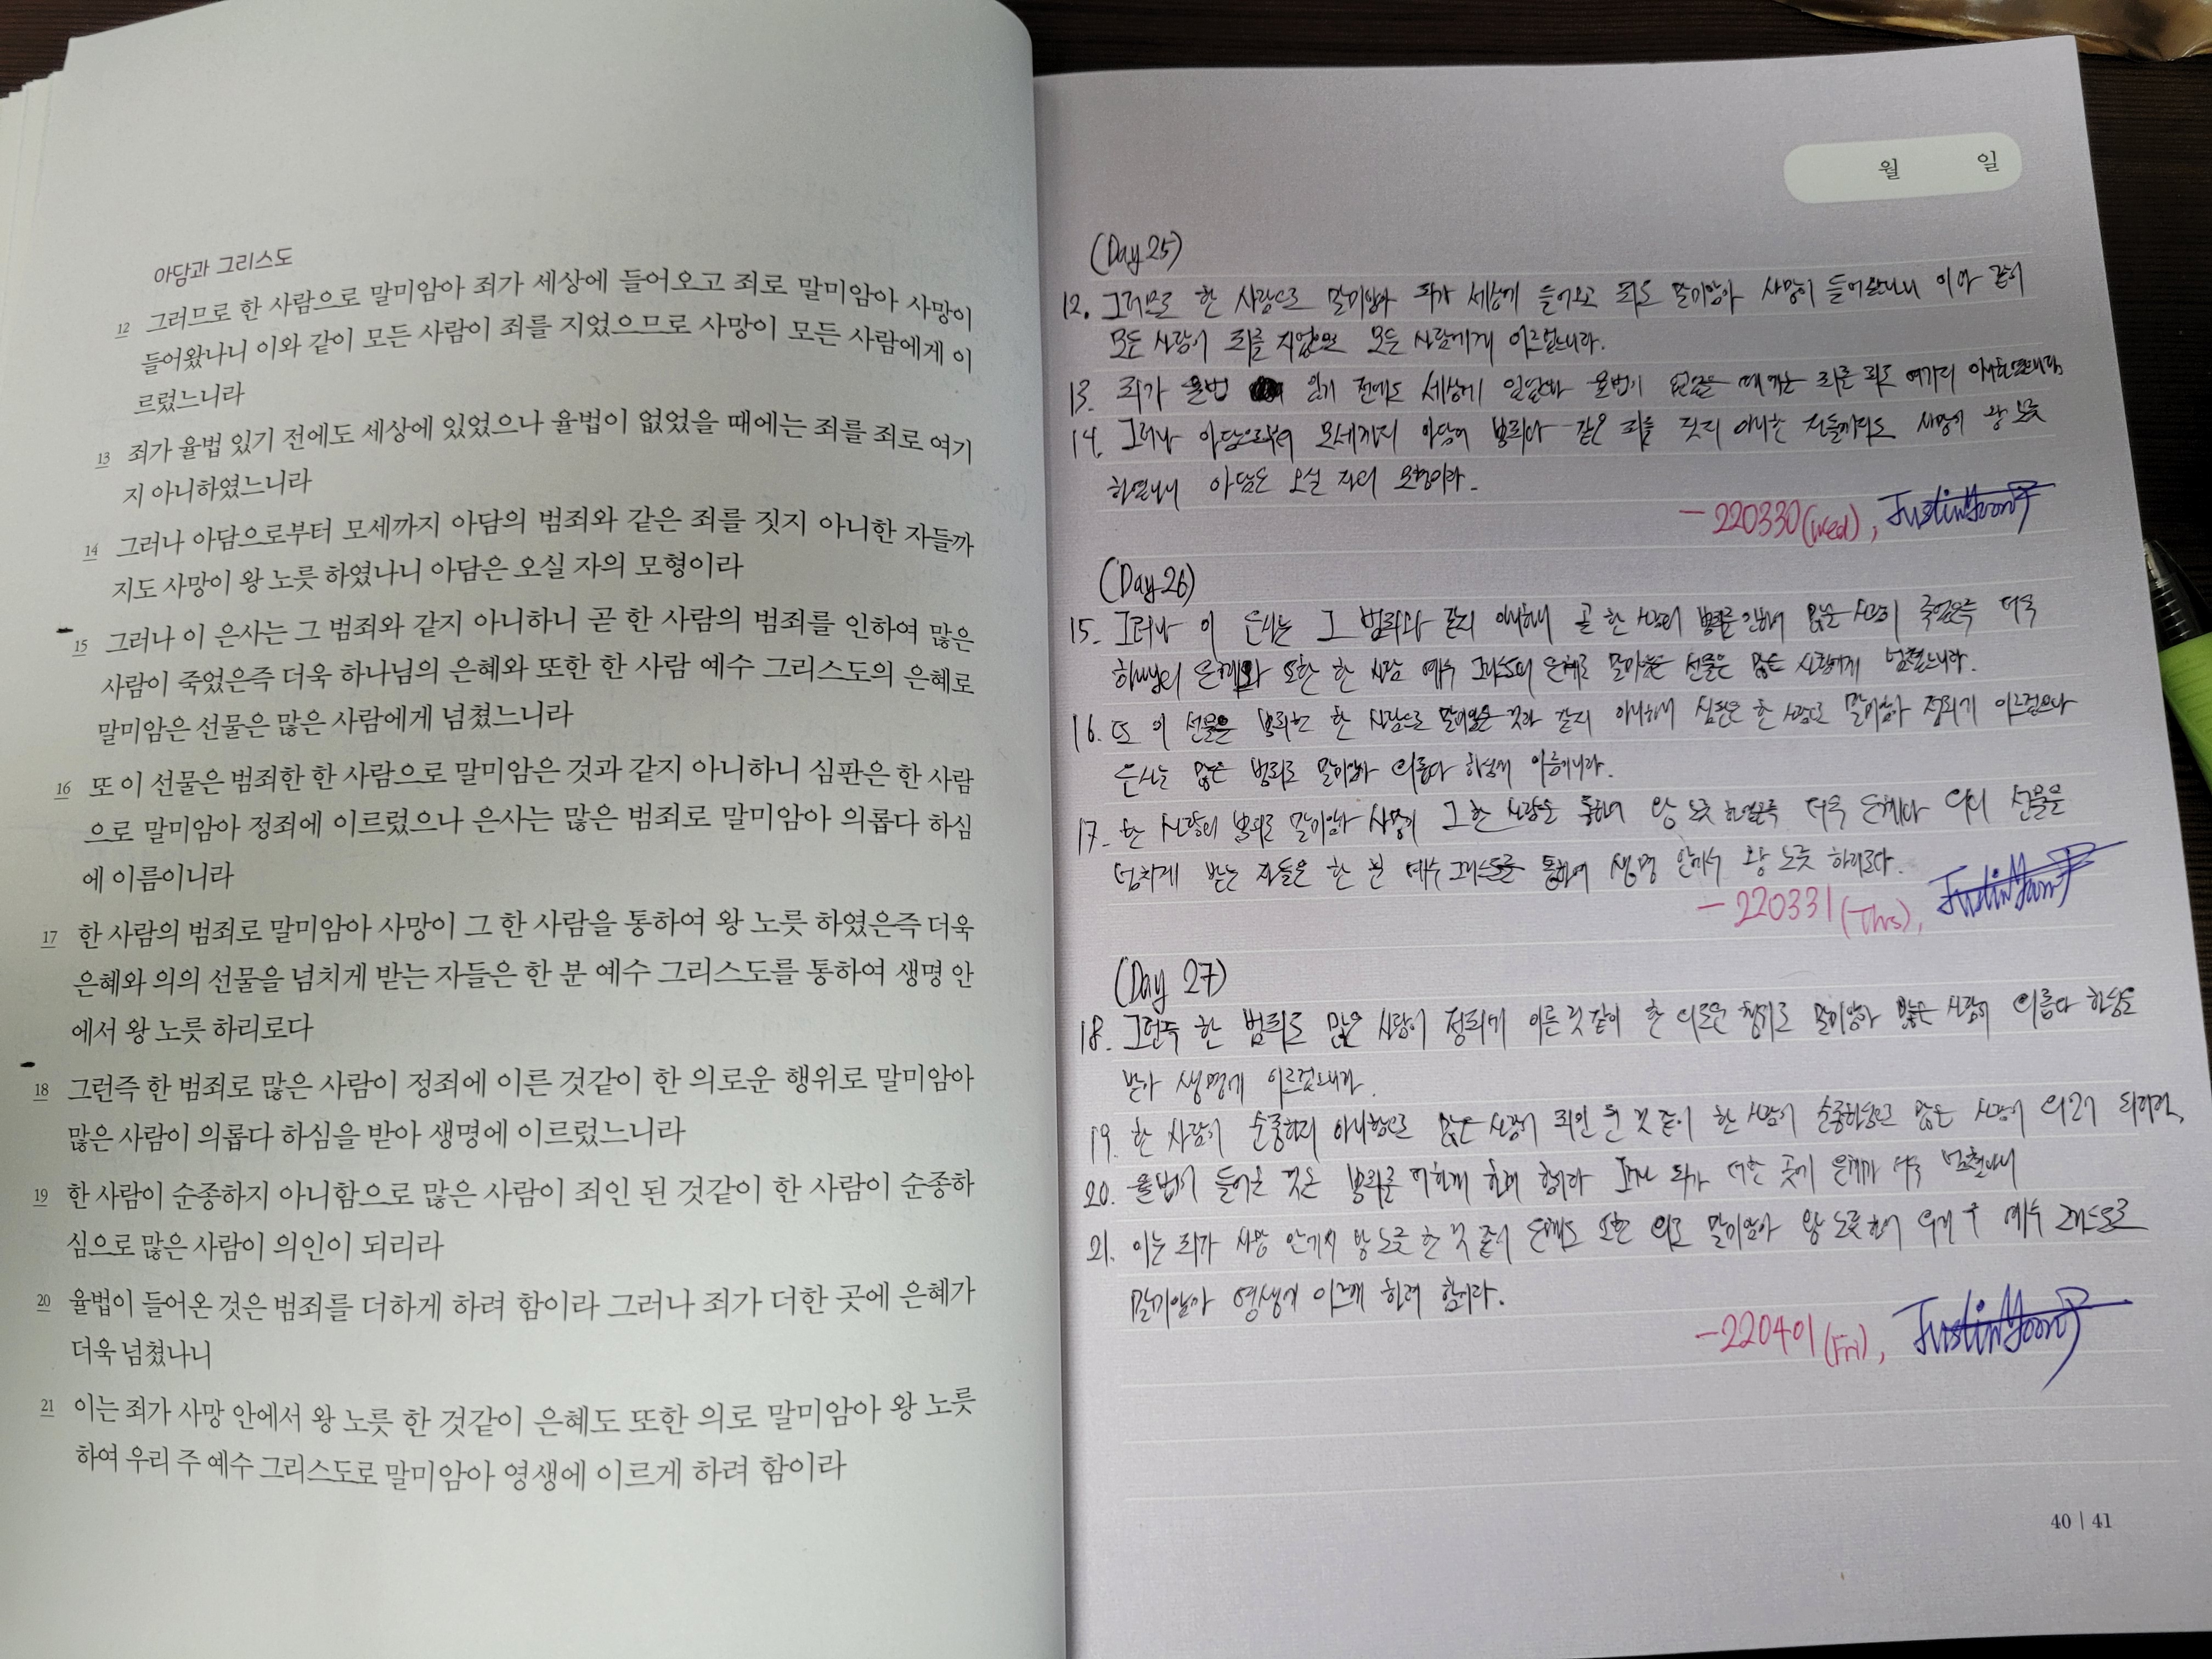 아담과 그리스도
12 그러므로 한 사람으로 말미암아 죄가 세상에 들어오고 죄로 말미암아 사망이
들어왔나니 이와 같이 모든 사람이 죄를 지었으므로 사망이 모든 사람에게 이
르렀느니라
13 죄가 율법 있기 전에도 세상에 있었으나 율법이 없었을 때에는 죄를 죄로 여기
지 아니하였느니라
14 그러나 아담으로부터 모세까지 아담의 범죄와 같은 죄를 짓지 아니한 자들까
지도 사망이 왕 노릇 하였나니 아담은 오실 자의 모형이라
15 그러나 이 은사는 그 범죄와 같지 아니하니 곧 한 사람의 범죄를 인하여 많은
사람이 죽었은즉 더욱 하나님의 은혜와 또한 한 사람 예수 그리스도의 은혜로
말미암은 선물은 많은 사람에게 넘쳤느니라
16 또 이 선물은 범죄한 한 사람으로 말미암은 것과 같지 아니하니 심판은 한 사람
으로 말미암아 정죄에 이르렀으나 은사는 많은 범죄로 말미암아 의롭다 하심
에 이름이니라
17 한 사람의 범죄로 말미암아 사망이 그 한 사람을 통하여 왕 노릇 하였은즉 더욱
은혜와 의의 선물을 넘치게 받는 자들은 한 분 예수 그리스도를 통하여 생명 안
에서 왕 노릇 하리로다
18 그런즉 한 범죄로 많은 사람이 정죄에 이른 것같이 한 의로운 행위로 말미암아
많은 사람이 의롭다 하심을 받아 생명에 이르렀느니라
19 한 사람이 순종하지 아니함으로 많은 사람이 죄인 된 것같이 한 사람이 순종하
심으로 많은 사람이 의인이 되리라
20 율법이 들어온 것은 범죄를 더하게 하려 함이라 그러나 죄가 더한 곳에 은혜가
더욱 넘쳤나니
21 이는 죄가 사망 안에서 왕 노릇 한 것같이 은혜도 또한 의로 말미암아 왕 노릇
하여 우리 주 예수 그리스도로 말미암아 영생에 이르게 하려 함이라
월 일
(Day 25)
12. 그러므로 한 사람으로 말미암아 죄가 세상에 들어오고 죄로 말미암아 사망이 들어왔나니 이와 같이
모든 사람이 죄를 지었으므로 모든 사람에게 이르렀느니라.
13. 죄가 율법 있기 전에도 세상에 있었으나 율법이 없었을 때에는 죄를 죄로 여기지 아니하였느니라.
14. 그러나 아담으로부터 모세까지 아담의 범죄와 같은 죄를 짓지 아니한 자들까지도 사망이 왕 노릇
하였나니 아담은 오실 자의 모형이라.
- 220330(Wed), Justin Yoon
(Day 26)
15. 그러나 이 은사는 그 범죄와 같지 아니하니 곧 한 사람의 범죄를 인하여 많은 사람이 죽었은즉 더욱
하나님의 은혜와 또한 한 사람 예수 그리스도의 은혜로 말미암은 선물은 많은 사람에게 넘쳤느니라.
16. 또 이 선물은 범죄한 한 사람으로 말미암은 것과 같지 아니하니 심판은 한 사람으로 말미암아 정죄에 이르렀으나
은사는 많은 범죄로 말미암아 의롭다 하심에 이름이니라.
17. 한 사람의 범죄로 말미암아 사망이 그 한 사람을 통하여 왕 노릇 하였은즉 더욱 은혜와 의의 선물을
넘치게 받는 자들은 한 분 예수 그리스도를 통하여 생명 안에서 왕 노릇 하리로다.
- 220331(Thrs), Justin Yoon
(Day 27)
18. 그런즉 한 범죄로 많은 사람이 정죄에 이른 것 같이 한 의로운 행위로 말미암아 많은 사람이 의롭다 하심을
받아 생명에 이르렀느니라.
19. 한 사람이 순종하지 아니함으로 많은 사람이 죄인 된 것 같이 한 사람이 순종하심으로 많은 사람이 의인이 되리라.
20. 율법이 들어온 것은 범죄를 더하게 하려 함이라 그러나 죄가 더한 곳에 은혜가 더욱 넘쳤나니
21. 이는 죄가 사망 안에서 왕 노릇 한 것 같이 은혜도 또한 의로 말미암아 왕 노릇 하여 우리 주 예수 그리스도로
말미암아 영생에 이르게 하려 함이라.
- 220401(Fri), Justin Yoon
40 | 41